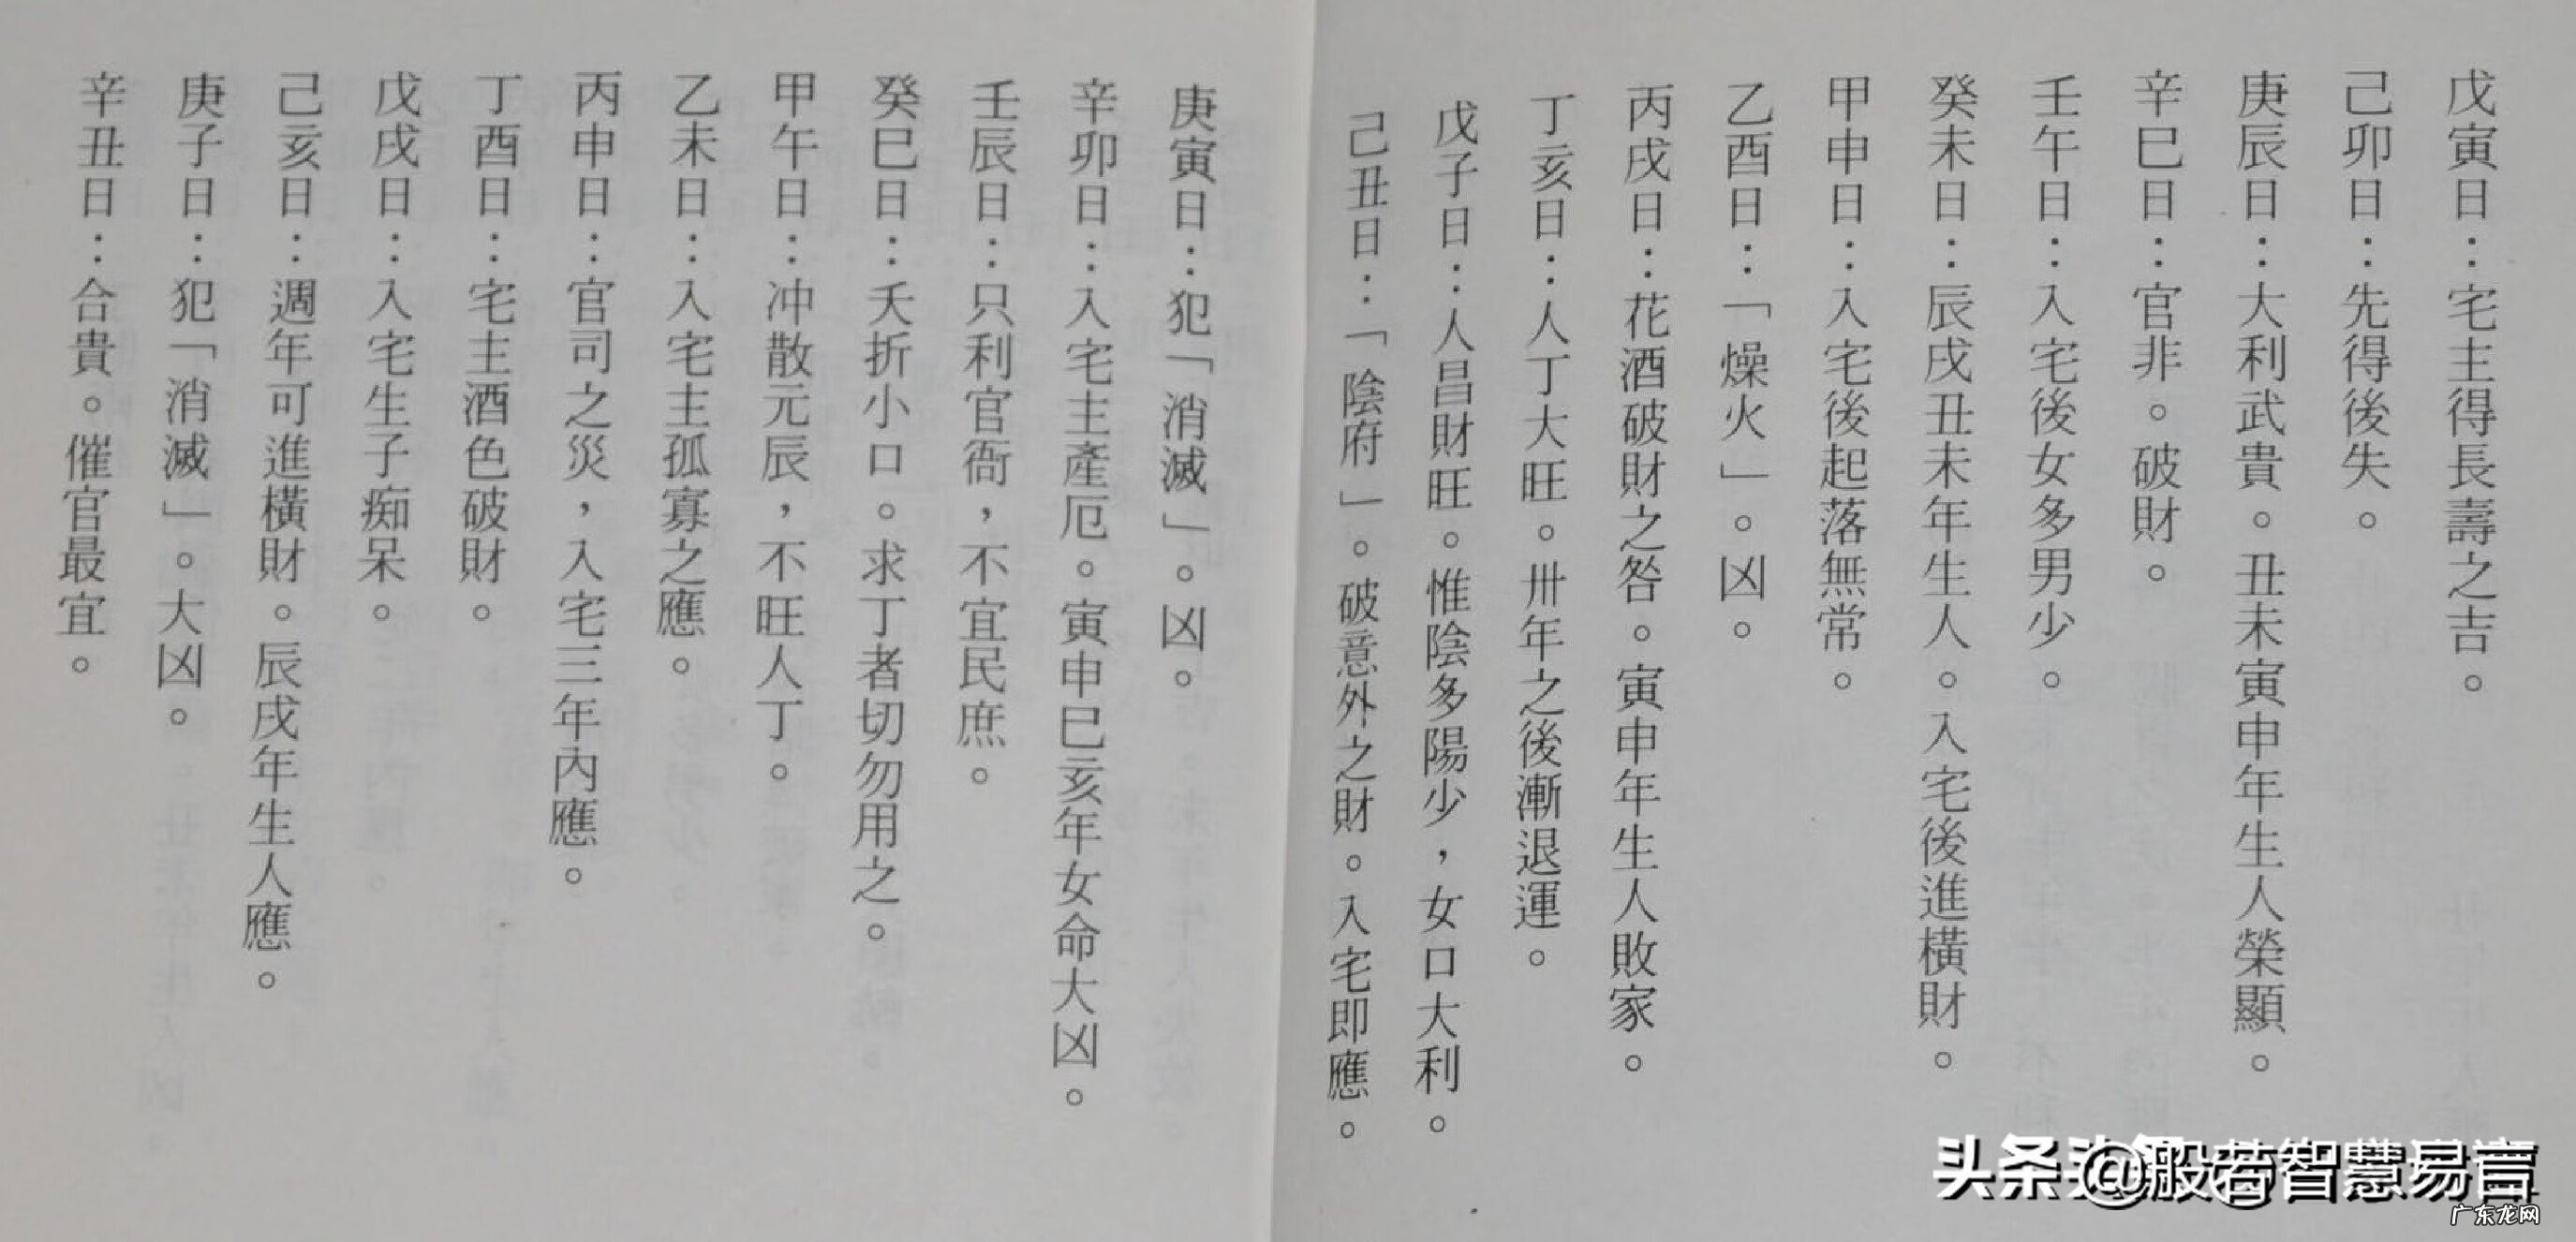 戊寅日：宅主得長壽之吉。
己卯日：先得後失。
庚辰日：大利武貴。丑未寅申年生人榮顯。
辛巳日：官非。破財。
壬午日：入宅後女多男少。
癸未日：辰戌丑未年生人。入宅後進橫財。
甲申日：入宅後起落無常。
乙酉日：「燥火」。凶。
丙戌日：花酒破財之咎。寅申年生人敗家。
丁亥日：人丁大旺。卅年之後漸退運。
戊子日：人昌財旺。惟陰多陽少，女口大利。
己丑日：「陰府」。破意外之財。入宅即應。
庚寅日：犯「消滅」。凶。
辛卯日：入宅主產厄。寅申巳亥年女命大凶。
壬辰日：只利官衙，不宜民庶。
癸巳日：夭折小口。求丁者切勿用之。
甲午日：冲散元辰，不旺人丁。
乙未日：入宅主孤寡之應。
丙申日：官司之災，入宅三年內應。
丁酉日：宅主酒色破財。
戊戌日：入宅生子痴呆。
己亥日：週年可進橫財。辰戌年生人應。
庚子日：犯「消滅」。大凶。
辛丑日：合貴。催官最宜。
头条 @般若智慧易言
广东龙网